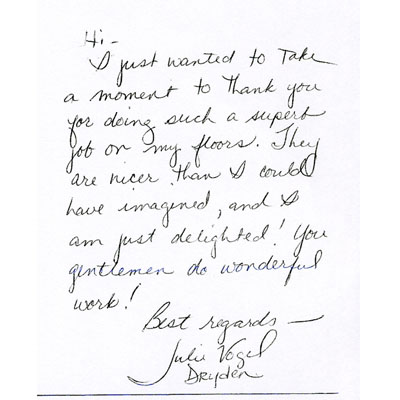 Hi –
I just wanted to take
a moment to thank you
for doing such a superb
job on my floors. They
are nicer than I could
have imagined, and I
am just delighted! You
gentlemen do wonderful
work!
Best regards —
Julie Vogel
Dryden